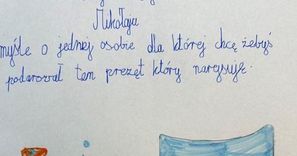 Mikołaju
myśle o jednej osobie dla której chcę żebyś
podarował ten prezęt który narysuje.